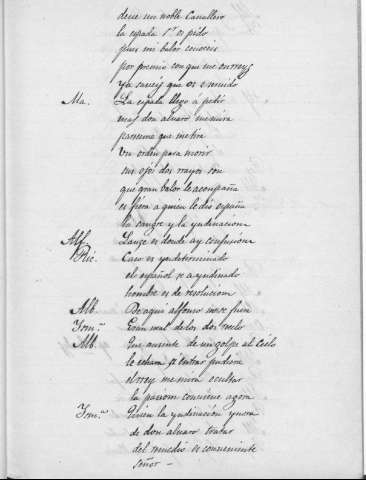 deue un noble Cauallero
la espada Sr. os pido
pues mi balor conoceis
por premio con que me onrreys
ya saueis que os e seruido
Ma. La espada llego á pedir
mas don aluaro me mira
pareseme que me tira
Un orden para morir
sus ojos dos rrayos son
que gran balor le acompaña
es fiera a quien le dio españa
la sangre y la yndinacion
Alf. Lanze es donde ay confusion
Ric. Caso es ya determinado
el español se a yndinado
hombre es de resolucion
Alb. De aqui alfonso no se fuera
Yrmª. Gran mal de los dos recelo
Alb. Que ausente de un golpe al Cielo
le echara si entrar pudiera
el rrey me mira ocultar
la pasion conuiene agora
Yrmª. Quien la yndinacion
de don aluaro tratar
del remedio es conueniente
señor —